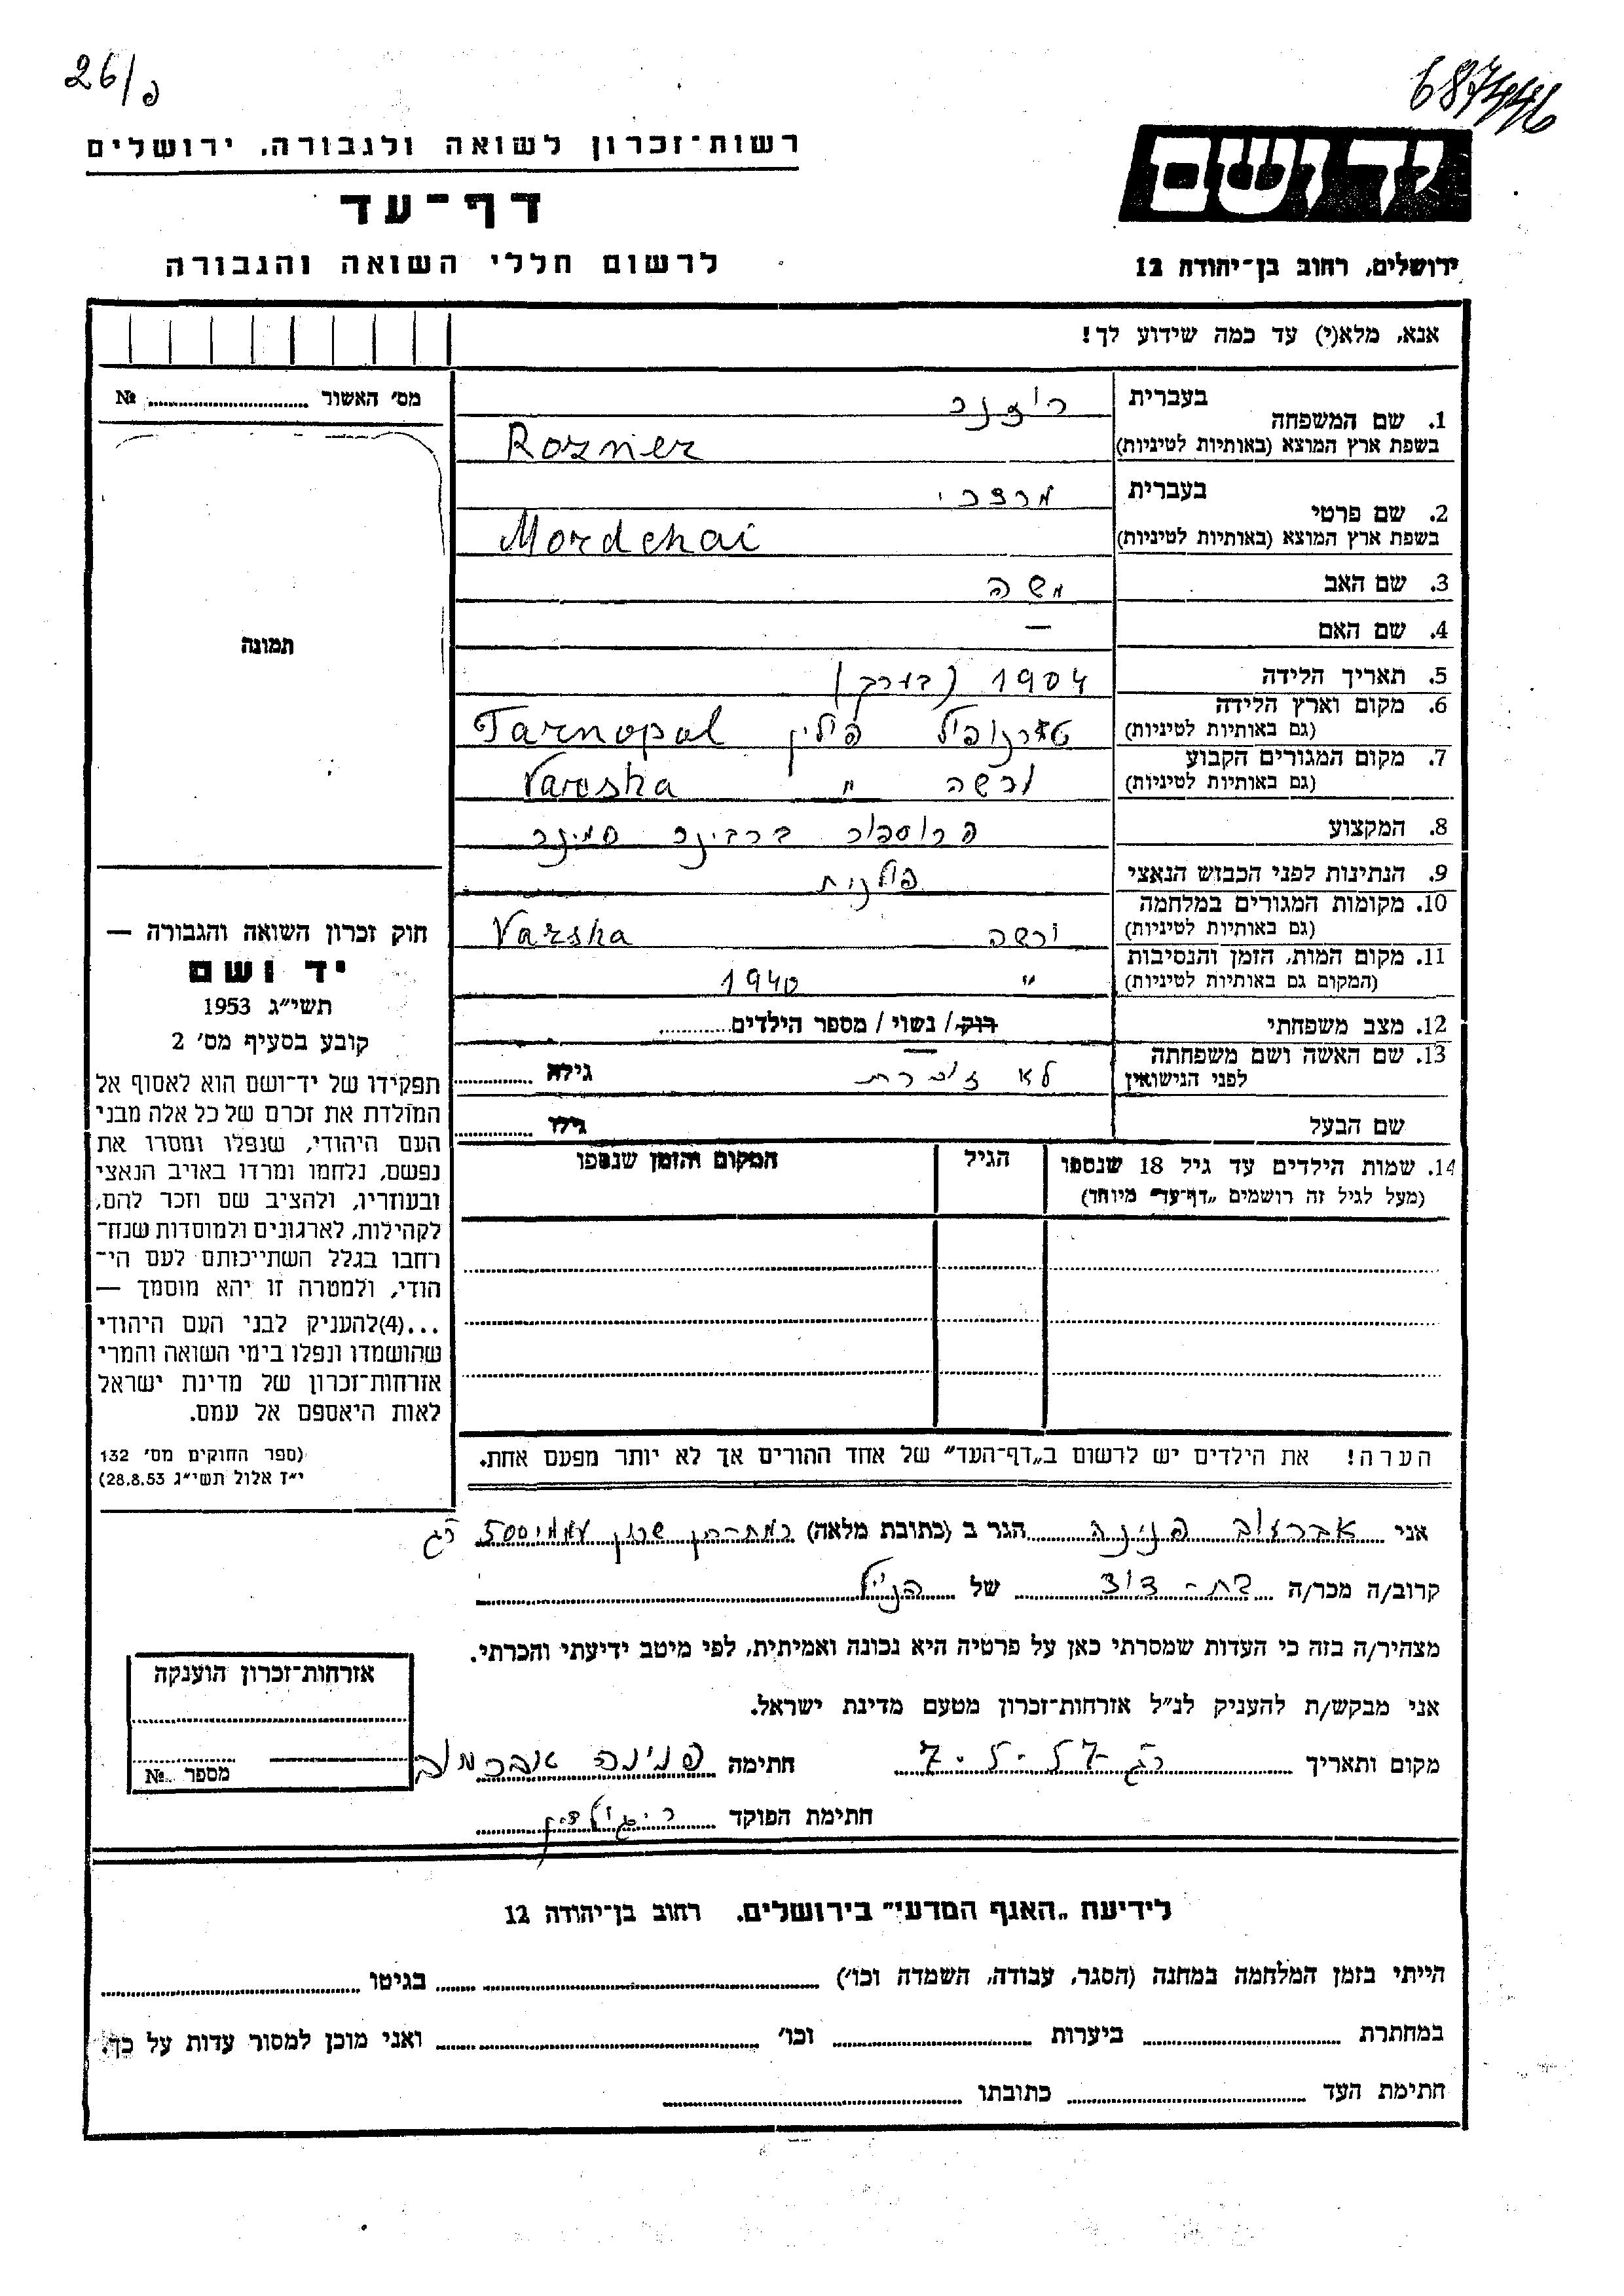 26/פ
687446
רשות־זכרון לשואה ולגבורה, ירושלים
דף־עד
לרשום חללי השואה והגבורה
יד ושם
ירושלים, רחוב בן־יהודה 12
אנא, מלא(י) עד כמה שידוע לך!
מס׳ האשור № ........
1. שם המשפחה בעברית רוזנר
בשפת ארץ המוצא (באותיות לטיניות) Rozner
2. שם פרטי בעברית מרדכי
בשפת ארץ המוצא (באותיות לטיניות) Mordehai
3. שם האב משה
4. שם האם —
5. תאריך הלידה 1904 (בערך)
6. מקום וארץ הלידה טרנופול פולין Tarnopol
(גם באותיות לטיניות)
7. מקום המגורים הקבוע ורשה " Varsha
(גם באותיות לטיניות)
8. המקצוע פרופסור ברבינר סמינר
9. הנתינות לפני הכבוש הנאצי פולנית
10. מקומות המגורים במלחמה ורשה Varsha
(גם באותיות לטיניות)
11. מקום המות, הזמן והנסיבות " 1940
(המקום גם באותיות לטיניות)
12. מצב משפחתי רוק/ נשוי/ מספר הילדים........
13. שם האשה ושם משפחתה לא זוכרת גילה ........
לפני הנישואין
שם הבעל גילו ........
14. שמות הילדים עד גיל 18 שנספו הגיל המקום והזמן שנספו
(מעל לגיל זה רושמים „דף־עד" מיוחד)
תמונה
חוק זכרון השואה והגבורה —
יד ושם
תשי״ג 1953
קובע בסעיף מס׳ 2
תפקידו של יד־ושם הוא לאסוף אל
המולדת את זכרם של כל אלה מבני
העם היהודי, שנפלו ומסרו את
נפשם, נלחמו ומרדו באויב הנאצי
ובעוזריו, ולהציב שם וזכר להם,
לקהילות, לארגונים ולמוסדות שנח־
רחבו בגלל השתייכותם לעם הי־
הודי, ולמטרה זו יהא מוסמך —
...(4)להעניק לבני העם היהודי
שהושמדו ונפלו בימי השואה והמרי
אזרחות־זכרון של מדינת ישראל
לאות היאספם אל עמם.
(ספר החוקים מס׳ 132
י״ז אלול תשי״ג 28.8.53)
הערה! את הילדים יש לרשום ב„דף־העד" של אחד ההורים אך לא יותר מפעם אחת.
אני פנינה הגר ב (כתובת מלאה) שכון עממי 500 רג
קרוב/ה מכר/ה בת-דוד של הנ״ל
מצהיר/ה בזה כי העדות שמסרתי כאן על פרטיה היא נכונה ואמיתית, לפי מיטב ידיעתי והכרתי.
אני מבקש/ת להעניק לנ״ל אזרחות־זכרון מטעם מדינת ישראל.
מקום ותאריך רג 7.5.57 חתימה פנינה אברמוב
חתימת הפוקד
אזרחות־זכרון הוענקה
מספר №
לידיעת „האגף המדעי" בירושלים, רחוב בן־יהודה 12
הייתי בזמן המלחמה במחנה (הסגר, עבודה, השמדה וכו׳) ........ בגיטו ........
במחתרת ........ ביערות ........ וכו׳ ........ ואני מוכן למסור עדות על כך.
חתימת העד ........ כתובתו ........